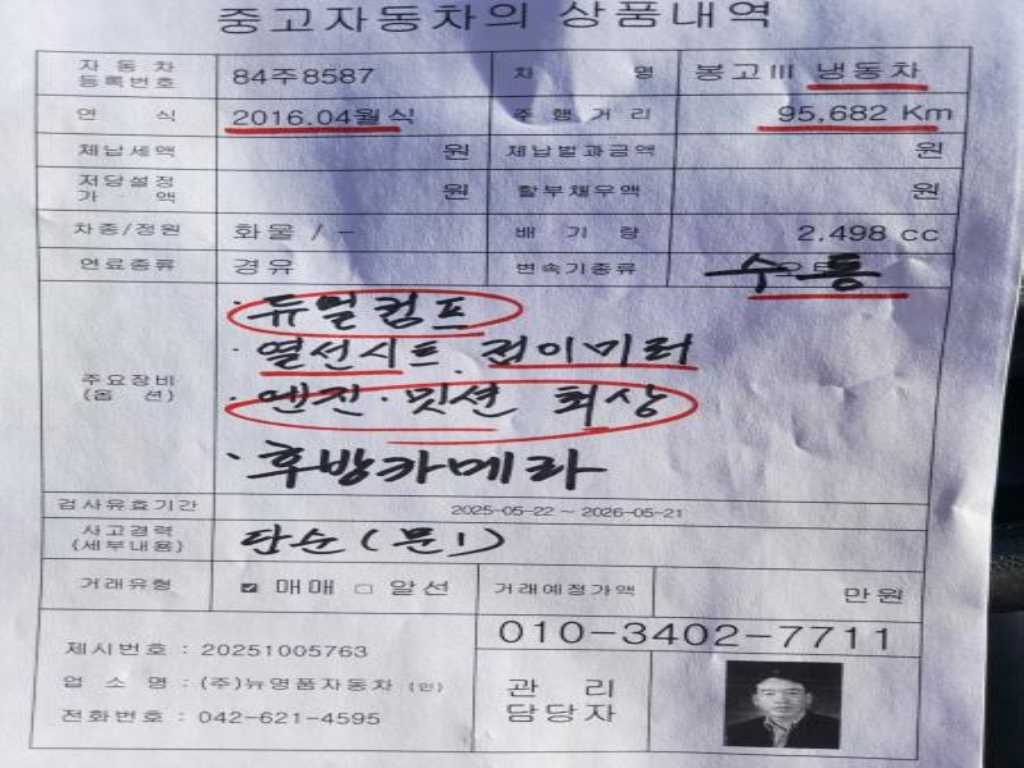 중고자동차의 상품내역
자동차 등록번호 84주8587 차 명 봉고III 냉동차
연 식 2016.04월식 주행거리 95,682 Km
체납세액 원 체납벌과금액 원
저당설정 가 액 원 할부채무액 원
차종/정원 화물 / - 배 기 량 2.498 cc
연료종류 경유 변속기종류 수동
주요장비 (옵 션)
· 듀얼컴프
· 열선시트. 전이미러
· 엔진·밋션 최상
· 후방카메라
검사유효기간 2025-05-22 ~ 2026-05-21
사고경력 (세부내용) 단순(문1)
거래유형 ☑ 매매 □ 알선 거래예정가액 만원
010-3402-7711
제시번호 : 20251005763
업 소 명 : (주)뉴명품자동차 (인)
전화번호 : 042-621-4595
관 리
담당자